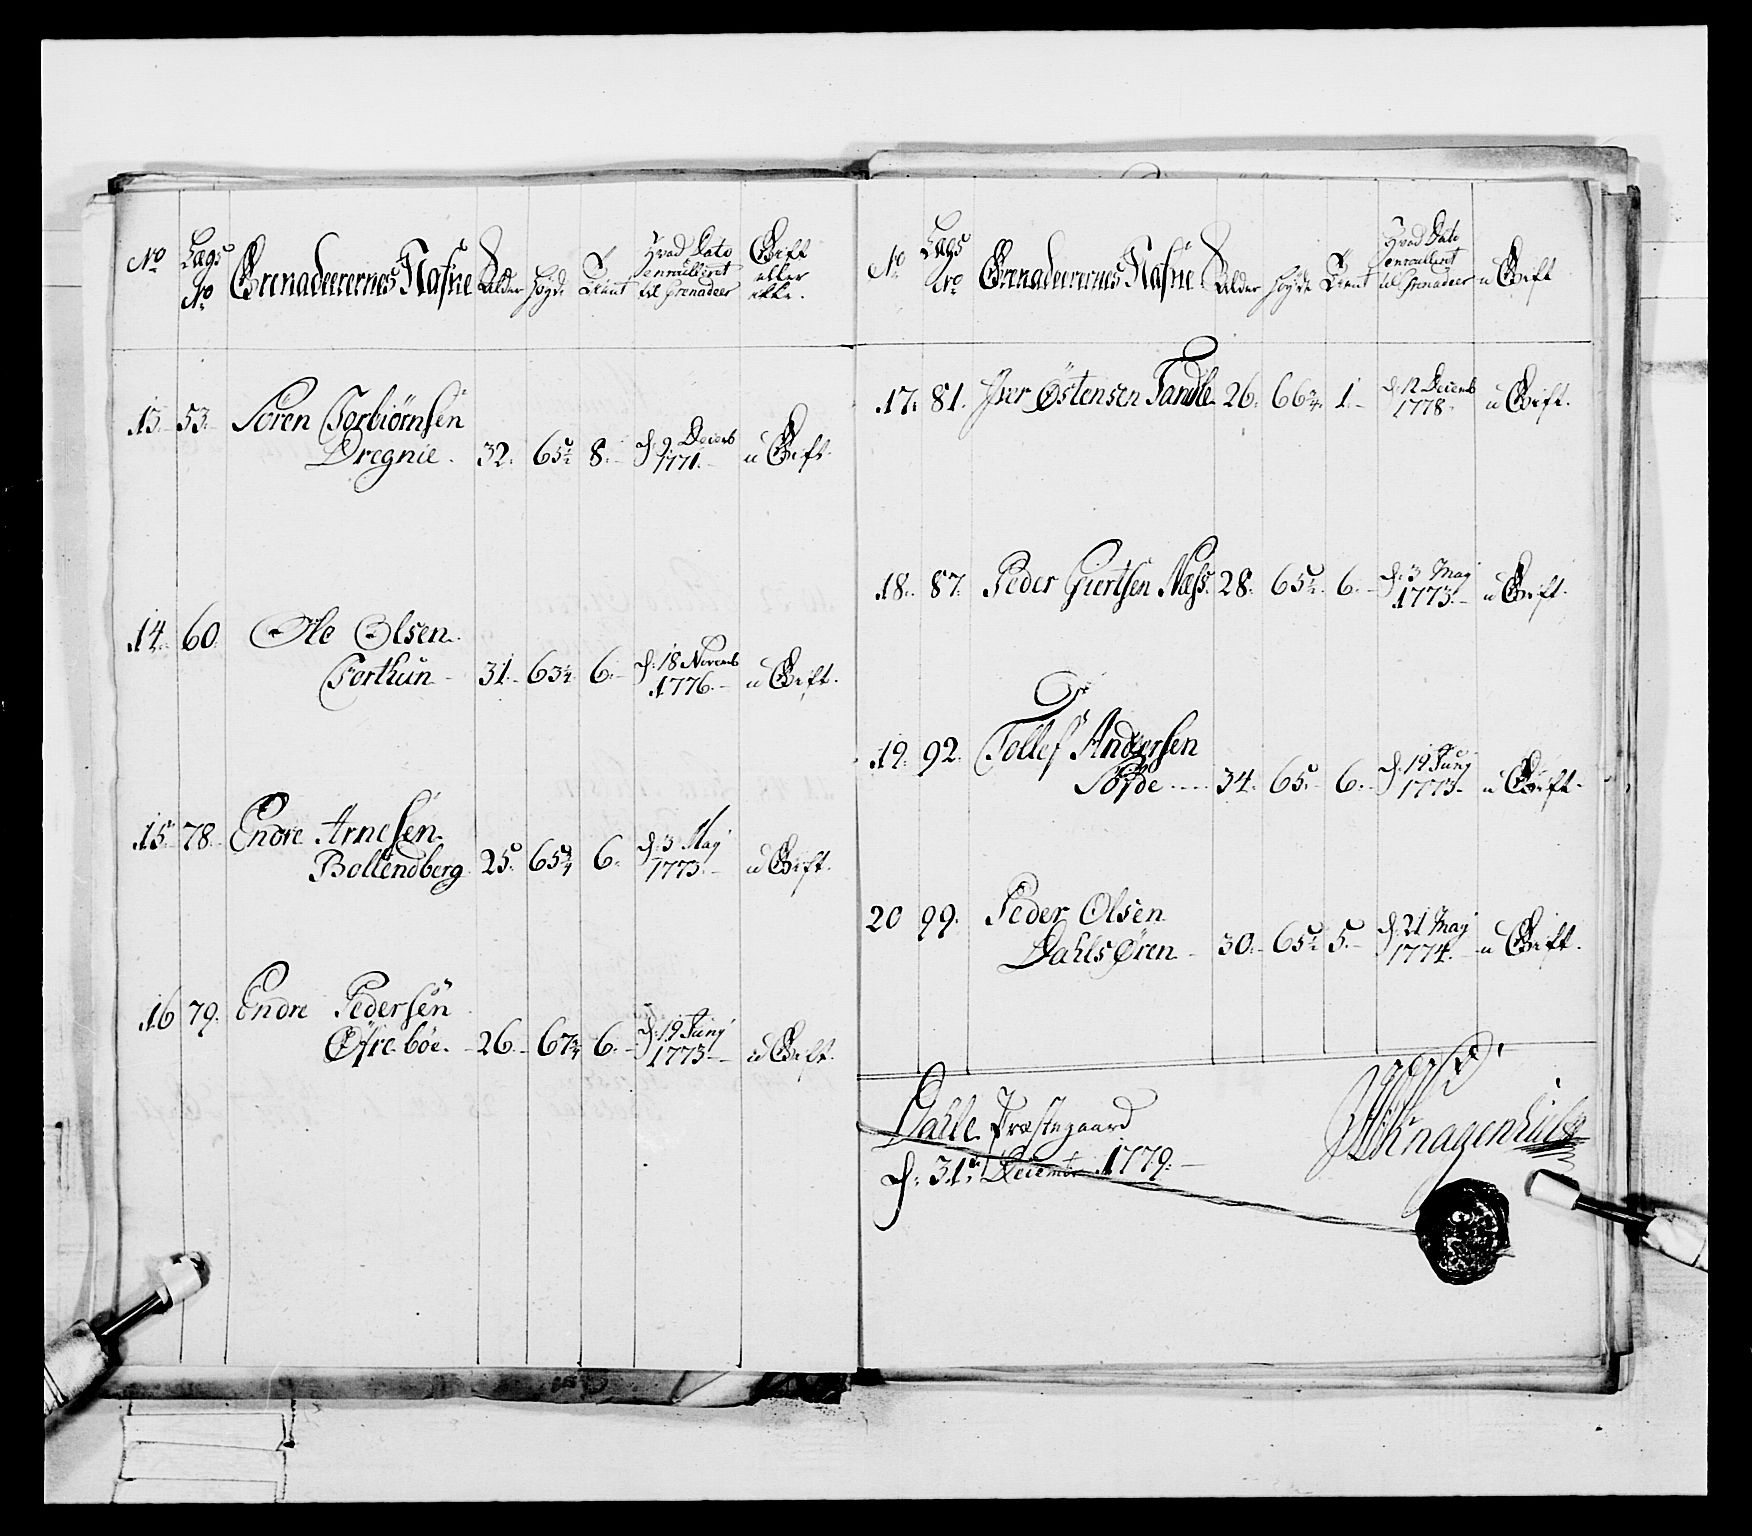 No Lægs No Grenadeerernes Nafne Alder Høyde Tient Hvad Dato enroulleret til Grenadeer Gift eller ikke.
13. 53. Soren Torbiørnsen
Dregnie. 32. 65½ 8. d: 9 Decemb 1771. u Gift.
14. 60. Ole Olsen
Forthun 31. 63¼ 6. d: 18 Novemb 1776. u Gift.
15. 78. Endre Arnesen
Bollendberg 25. 65¾ 6. d: 3 Maij 1773. u Gift.
16 79. Endre Pedersen
Øfrebøe. 26. 67¾ 6. d: 19 Junij 1773. u Gift.
No Lægs No Grenadeerernes Nafne Alder Høyde Tient Hvad Dato enroulleret til Grenadeer u Gift
17. 81. Iver Østensen Tandle 26. 66¾ 1. d: 12 Decemb 1778. u Gift.
18. 87. Peder Giertsen Næss. 28. 65½ 6. d: 3 Maij 1773. u Gift.
19. 92. Tollef Andersen
Sørde 34. 65. 6. d: 19 Junij 1773. u Gift.
20 99. Peder Olsen
Dahlsøren 30. 65½ 5. d: 21 Maij 1774. u Gift.
Dahle Præstegaard
d: 31te December 1779.